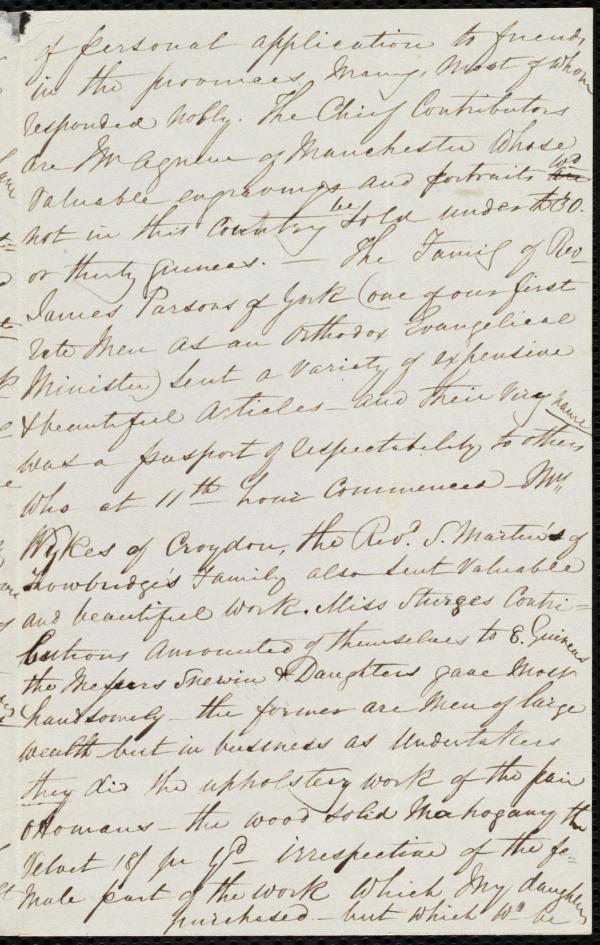 of personal application to friends
in the provinces, Many, Most of whom
responded nobly. The Chief Contributors
are Mr Agnew of Manchester whose
valuable engravings and portraits wd
not in this Country be sold under £30.
or thirty guineas. — The Family of Rev
James Parsons of York (one of our first
rate Men as an Orthodox Evangelical
Minister) sent a variety of expensive
& beautiful Articles — and their very name
was a passport of respectability to others
who at 11th hour Commenced — Mrs
Wykes of Croydon, the Revd. S. Martin's of
Trowbridge's Family also sent valuable
and beautiful work. Miss Sturges Contri=
butions amounted of themselves to 8. Guineas
the Messrs Snewin & Daughters gave Most
handsomely — the former are Men of large
wealth but in business as Undertakers
they did the upholstery work of the pair
Ottomans — the wood solid Mahogany the
Velvet 18/ pr yd — irrespective of the fe=
male part of the work which My daughters
purchased — but which wd be